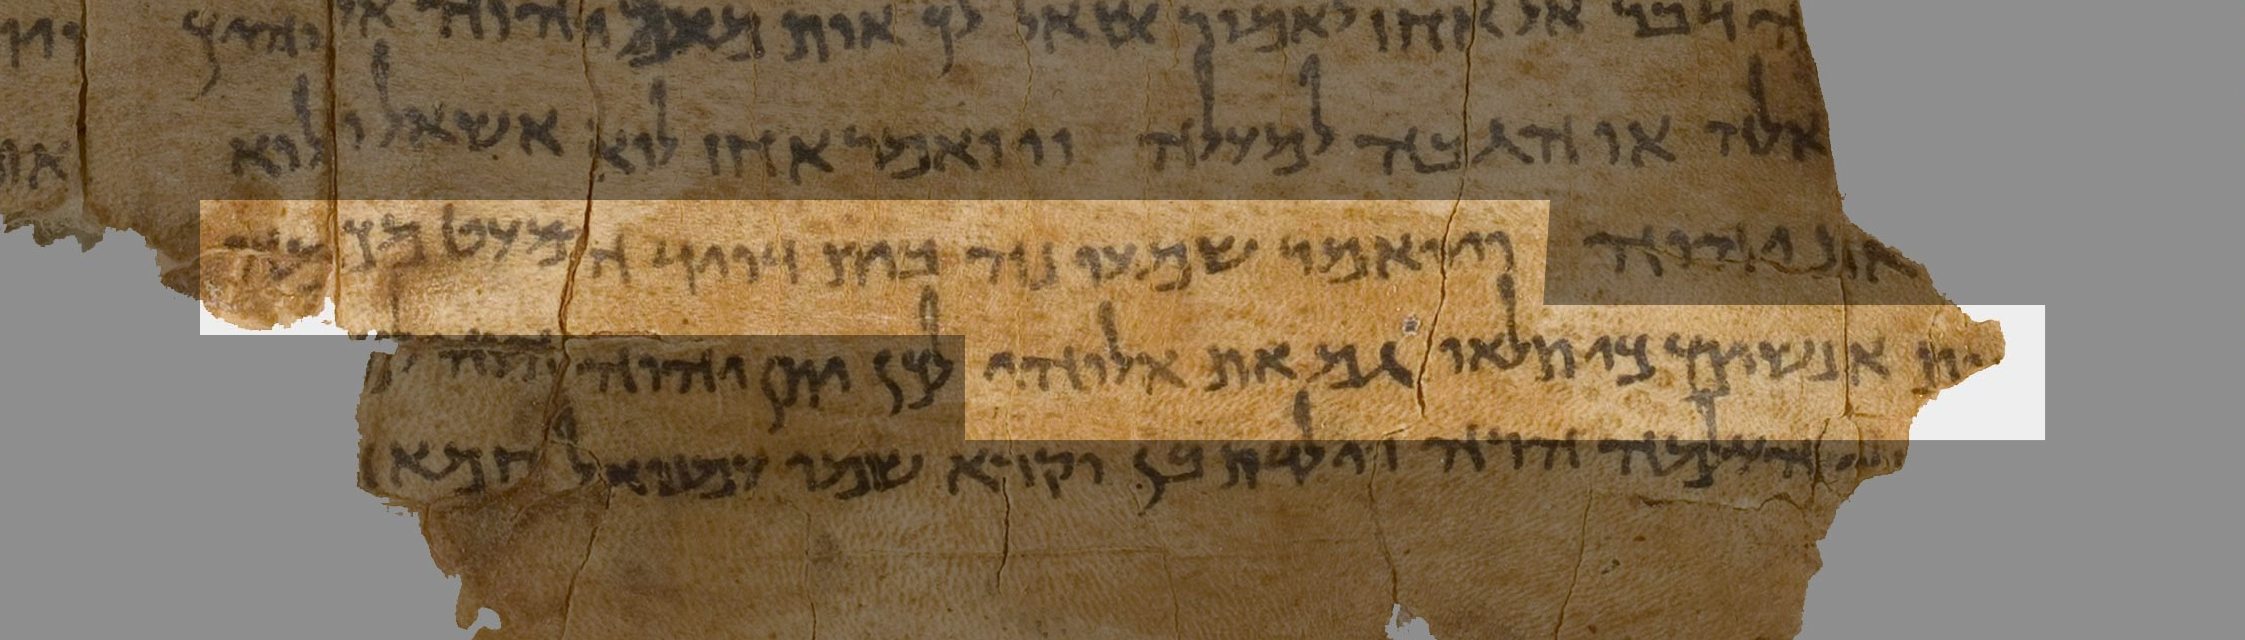 דבר אל אחז לאמור שאל לך אות מעם יהוה אלוהיך
שאלה או הגבה למעלה ויואמר אחז לוא אשאל ולוא
את יהוה ויואמר שמעו נה בית דויד המעט מכם
ות אנשים כי תלאו גם את אלוהי לכן יתן יהוה
העלמה הרה וילדת בן וקרא שמו עמנואל חמא